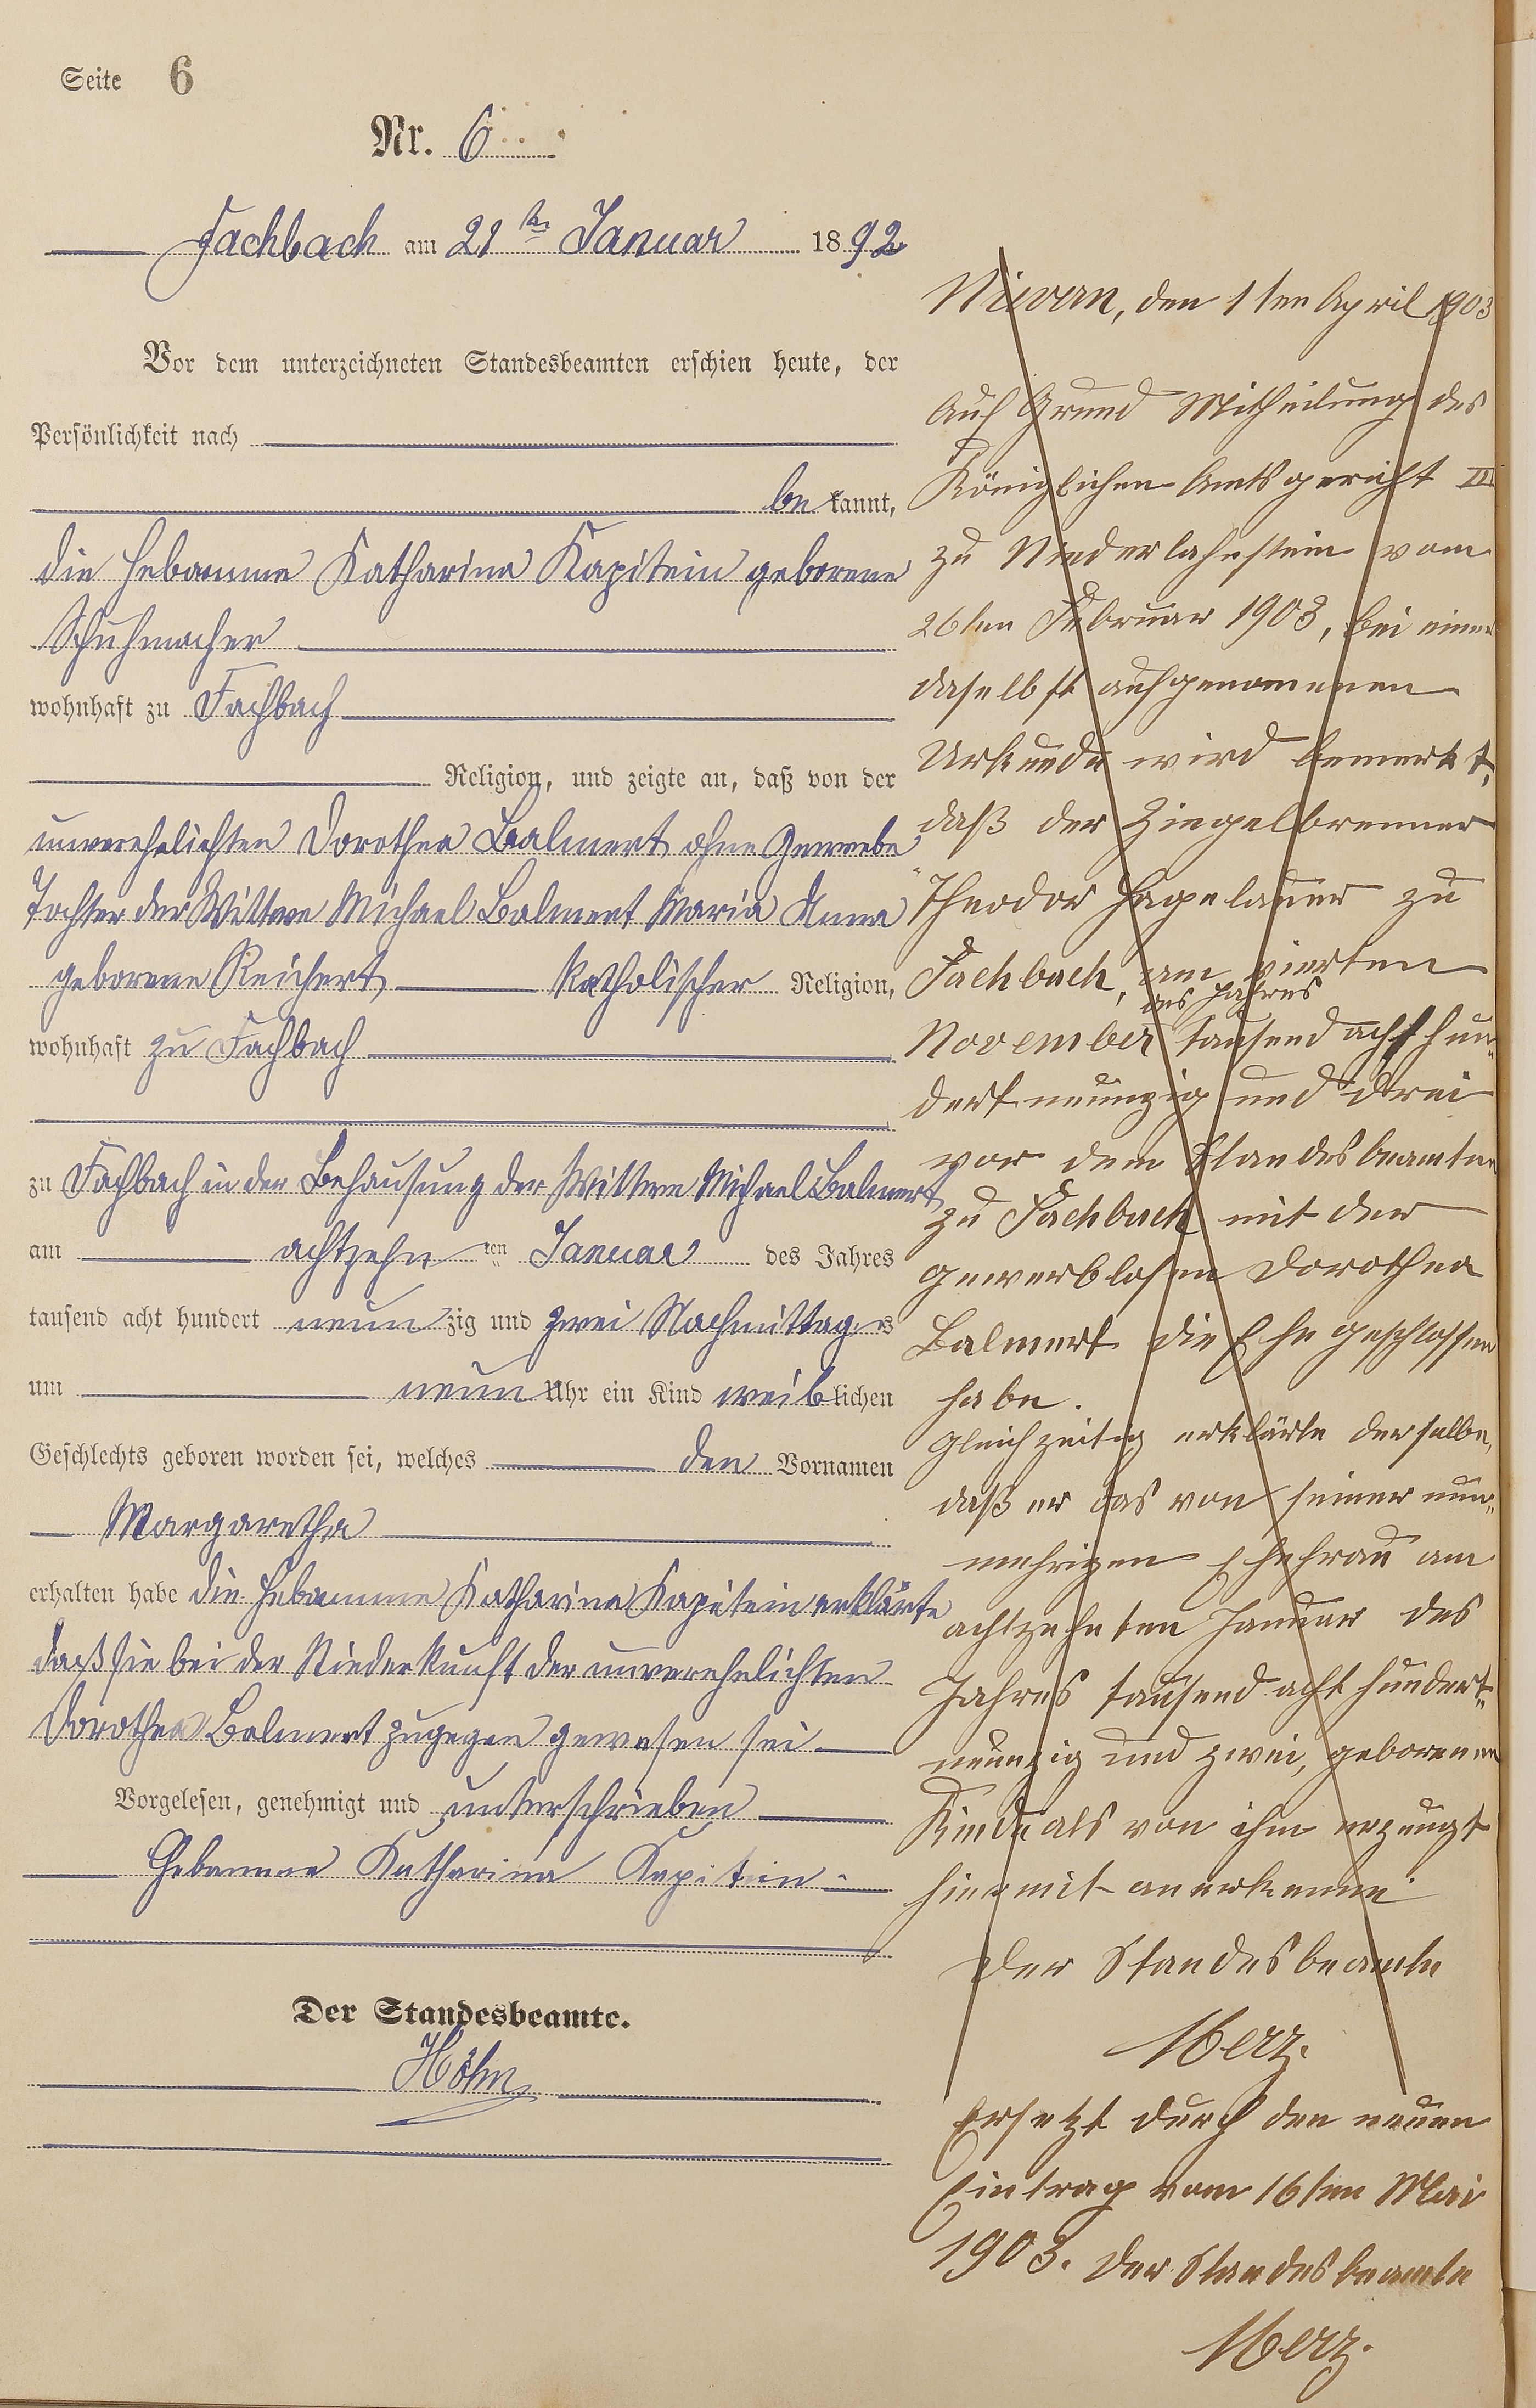 Seite 6
Nr. 6
Fachbach am 21ten Januar 1892
Vor dem unterzeichneten Standesbeamten erschien heute, der
Persönlichkeit nach
bekannt,
die Hebamme Katharina Kapitein geborene
Schuhmacher
wohnhaft zu Fachbach
Religion, und zeigte an, daß von der
unverehelichten Dorothea Balmert ohne Gewerbe
Tochter der Wittwe Michael Balmert Maria Anna
geborene Reichert katholischer Religion,
wohnhaft zu Fachbach
zu Fachbach in der Behausung der Wittwe Michael Balmert
am achtzehnten Januar des Jahres
tausend acht hundert neunzig und zwei Nachmittags
um neun Uhr ein Kind weiblichen
Geschlechts geboren worden sei, welches den Vornamen
Margaretha
erhalten habe die Hebamme Katharina Kapitein erklärte
daß sie bei der Niederkunft der unverehelichten
Dorothea Balmert zugegen gewesen sei
Vorgelesen, genehmigt und unterschrieben
Hebamme Katharina Kapitein
Der Standesbeamte.
Höhn
Nievern, den 1ten April 1903
Auf Grund Mitheilung des
Königlichen Amtsgericht III
zu Niederlahnstein vom
26ten Februar 1903, bei einer
daselbst aufgenomenen
Urkunde wird bemerkt,
daß der Ziegelbrenner
Theodor Hagelauer zu
Fachbach, am vierten
des Jahres
November tausend achthun-
dert neunzig und drei
vor dem Standesbeamten
zu Fachbach mit der
gewerblosen Dorothea
Balmert die Ehe geschlossen
habe.
Gleichzeitig erklärte derselbe,
daß er das von seiner nun-
mehrigen Ehefrau am
achtzehnten Januar des
Jahres tausend acht hundert-
neunzig und zwei, geborenen
Kinde als von ihm erzeugt
hiermit anerkenne.
Der Standesbeamte
Merz.
Ersetzt durch den neuen
Eintrag vom 16ten Mai
1903. Der Standesbeamte
Merz.